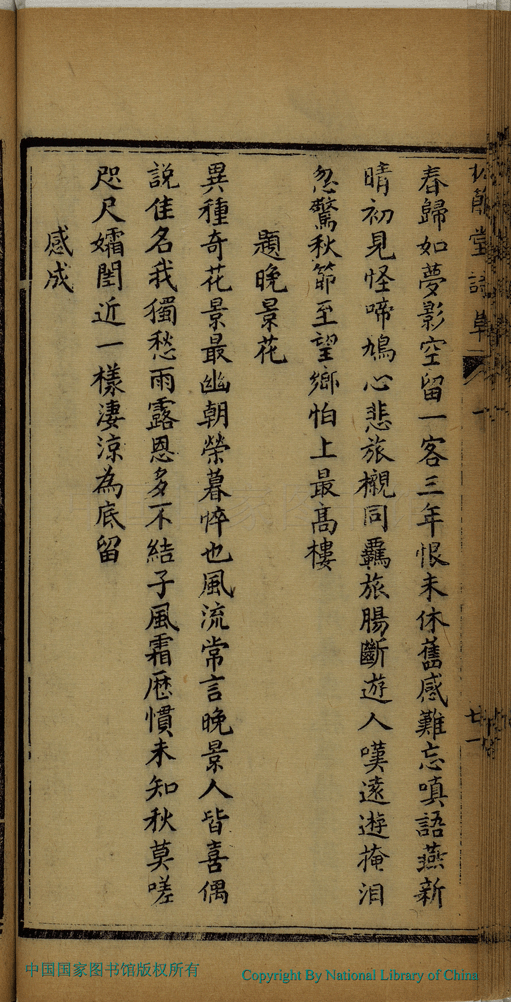 春歸如夢影空留一客三年恨未休舊感難忘嗔語燕新
晴初見怪啼鳩心悲旅櫬同羈旅腸斷遊人嘆遠遊掩淚
忽驚秋節至望鄉怕上最高樓
題晚景花
異種奇花景最幽朝榮暮悴也風流常言晚景人皆喜偶
說佳名我獨愁雨露恩多不結子風霜歷慣未知秋莫嗟
咫尺孀閨近一樣淒涼為底留
感成
中国国家图书馆版权所有
Copyright By National Library of China